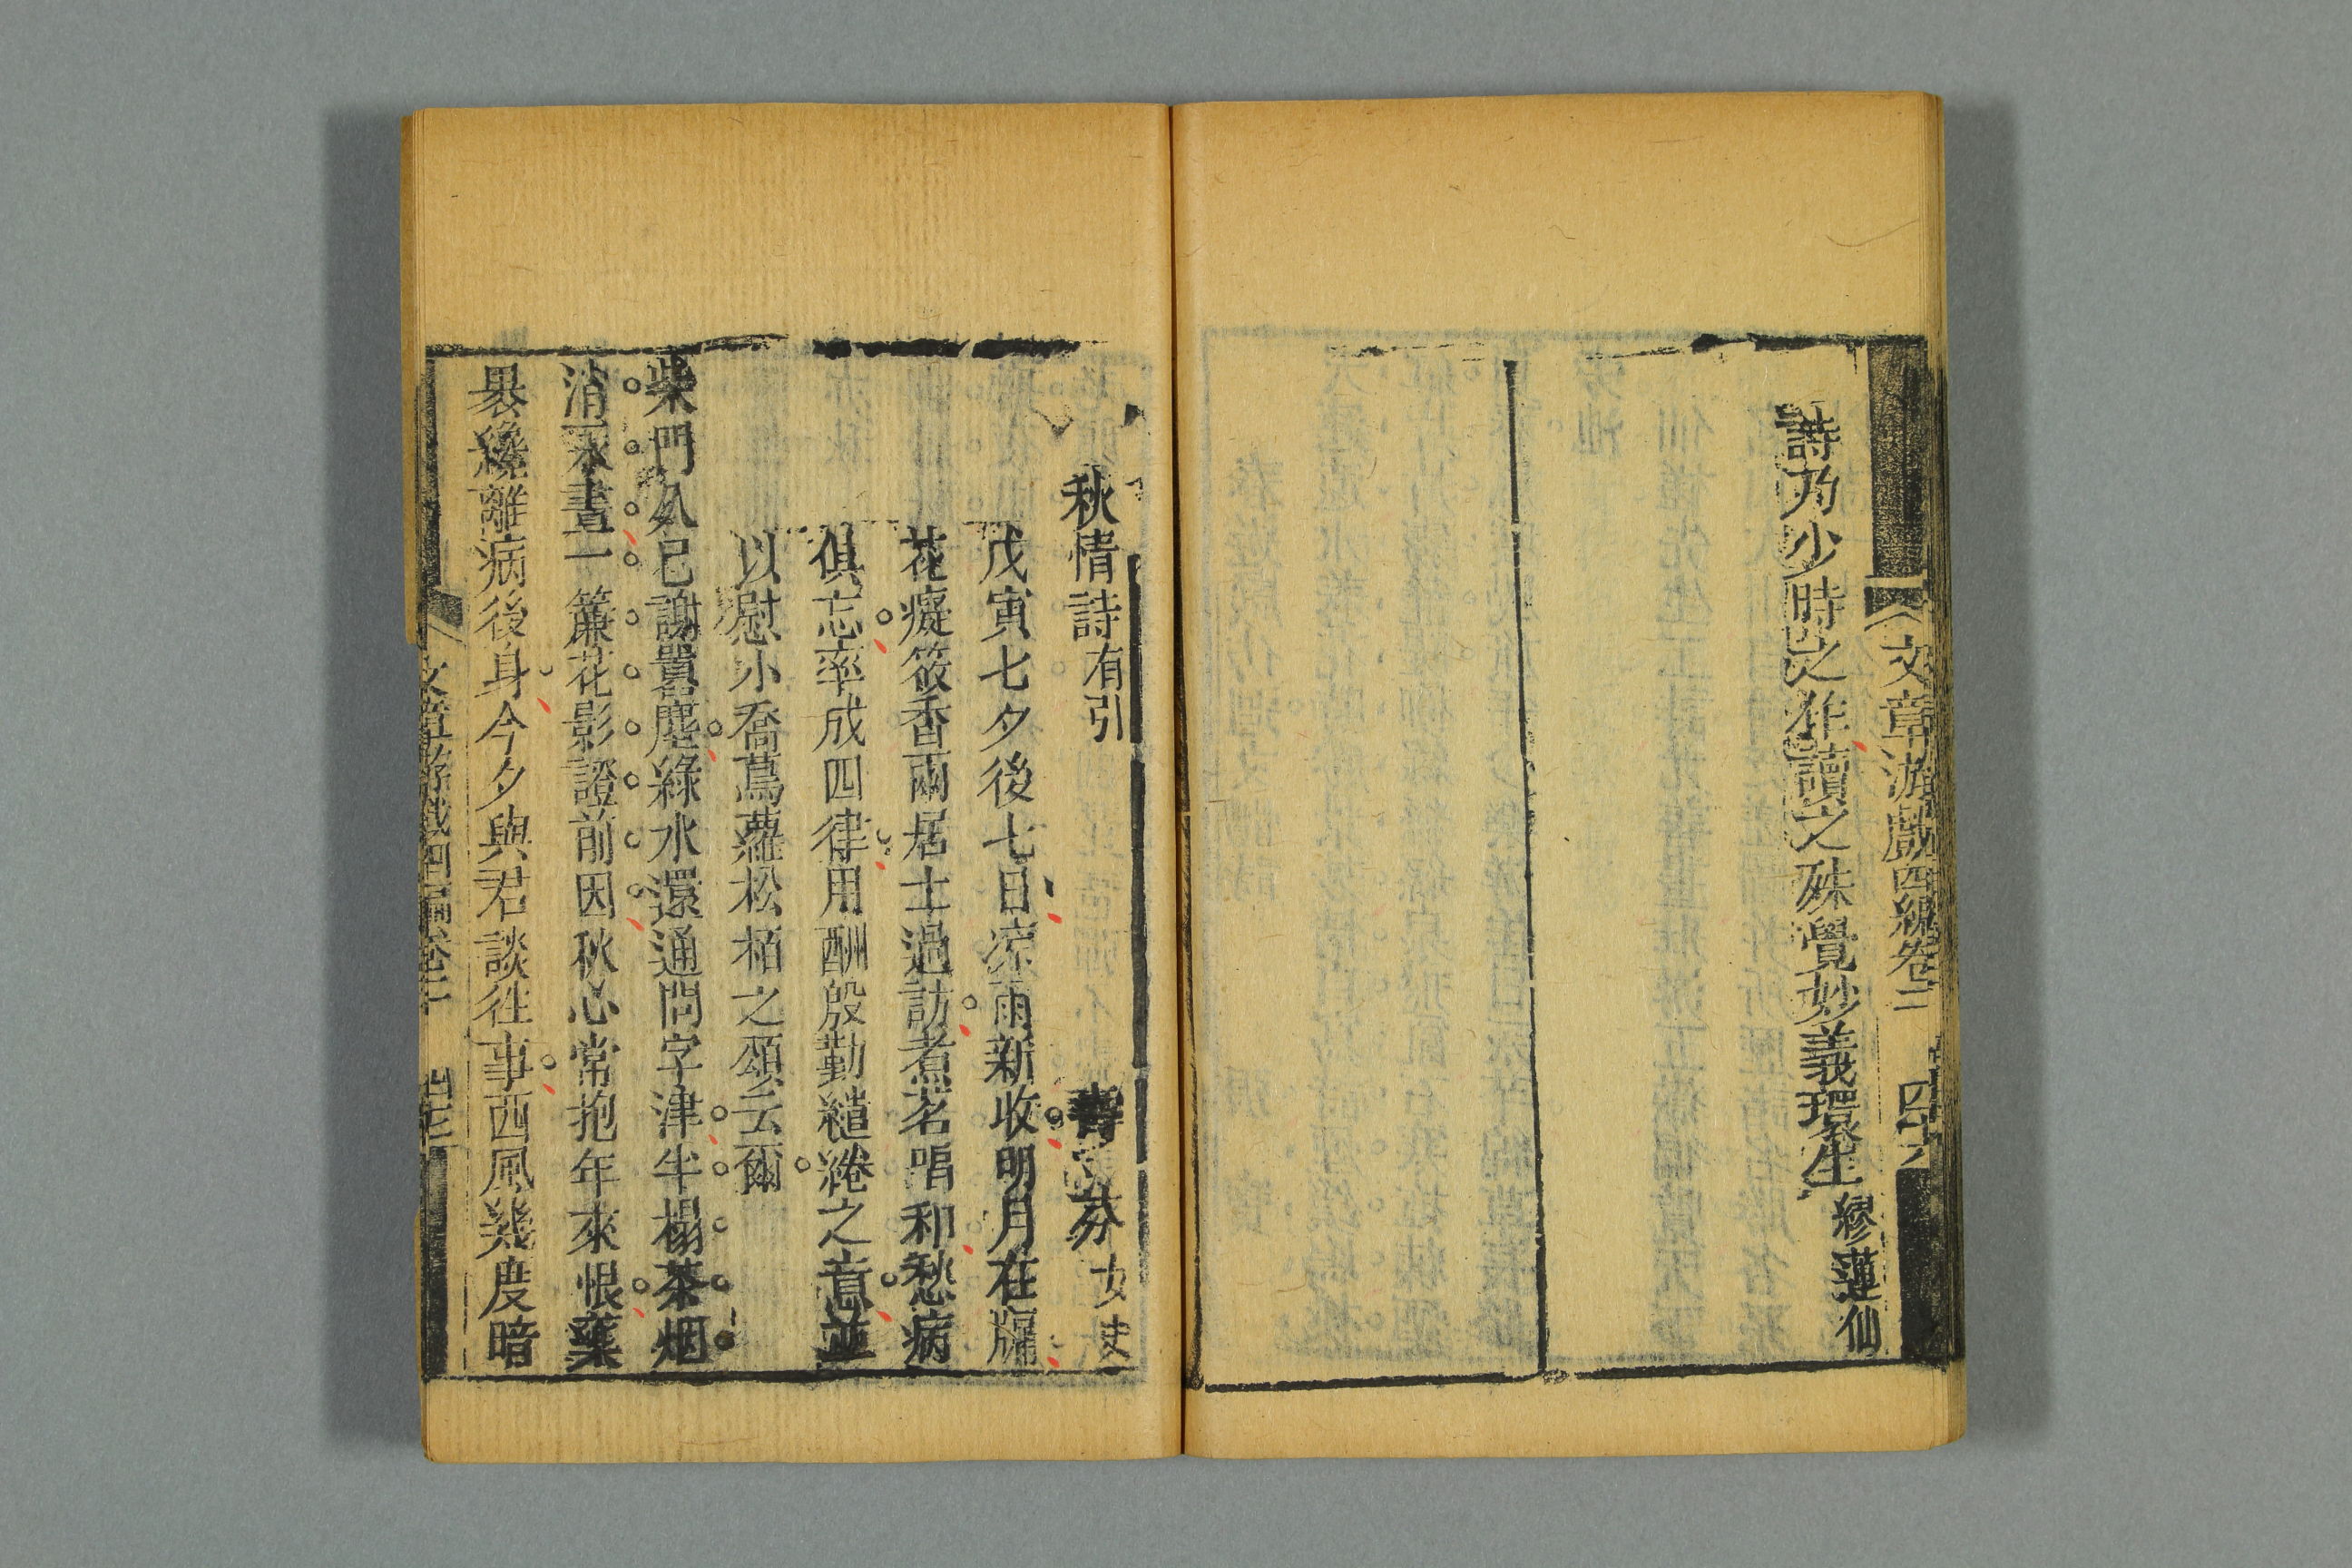 文章游戲四編卷二 四十六
詩乃少時之作讀之殊覺妙義環生 繆蓮仙
秋情詩有引 芬女史
戊寅七夕後七日凉雨新收明月在牖
花癡筱香兩居士過訪煮茗唱和愁病
俱忘率成四律用酬殷勤繾綣之意並
以慰小喬蔦蘿松栢之頌云爾
柴門久已謝囂塵綠水還通問字津半榻茶烟
消永晝一簾花影證前因秋心常抱年來恨藥
裊纔離病後身今夕與君談往事西風幾度暗
文章游戲四編卷二